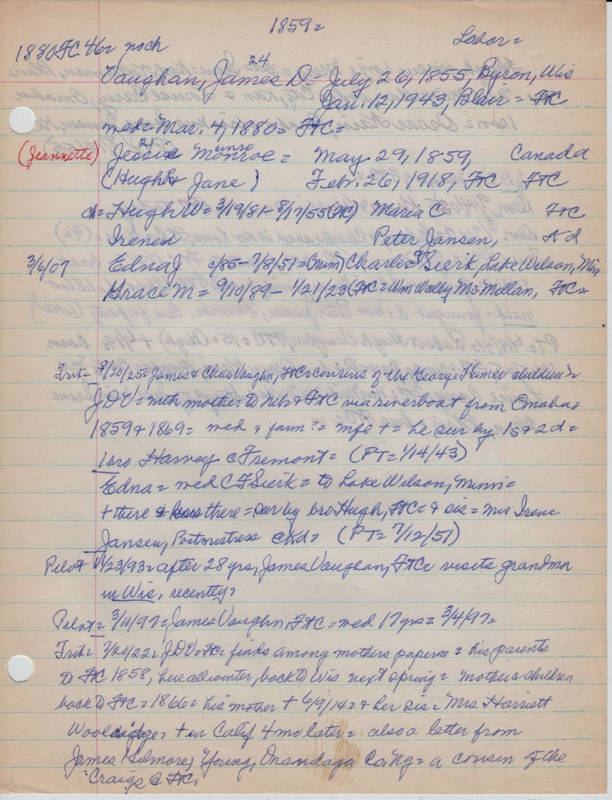 1859=
1880 FtC 46= noch
Labor=
24
Vaughan, James D= July 26, 1855, Byron, Wis
Jan. 12, 1943, Blair= FtC
wed= Mar. 4, 1880= FtC=
(Jeannette) Jessie Monroe= May 29, 1859, Canada
21 unro
(Hugh & Jane) Feb. 26, 1918, FtC FtC
ch= Hugh W= 3/19/81- 8/17/55(FtC) Maria C FtC
Irene d Peter Jansen,
3/6/07 Edna J c/85- 7/8/51= (Minn) Charlie F Sierk, Lake Wilson, Minn
Grace M= 9/10/89- 1/21/23 (FtC= Wm Wally McMillan, FtC=
Trib= 8/20/25= James & Chas Vaughn, FtC= cousins of the George children=
JDV= with mother to Neb & FtC via riverboat from Omaha=
1859 & 1869= wed & farm = life t= he sur by 1s & 2d=
1 bro Harvey @ Fremont= (PT= 1/14/43)
Edna= wed CF Sierk= to Lake Wilson, Minn=
t there = sur by bro Hugh, FtC= & sis= Mrs Irene
Jansen, Postmistress = (PT= 7/12/51)
Pilot 11/23/93= after 28 yrs, James Vaughan, FtC= visits grandma
in Wis, recently=
Pilot= 3/11/97= James Vaughn, FtC= wed 17 yrs= 3/4/97=
Trib= 7/20/22= JDV= FtC= finds among mothers papers= his parents
to FtC 1858, here all winter, back to Wis next spring= mother & children
back to FtC= 1866= his mother t 6/9/14= & her sis= Mrs Harriett
Wooldridge= t in Calif 4 mo later= also a letter from
James Gilmore, Young, Onandaga Co, NY= a cousin of the
Craigs @ FtC,